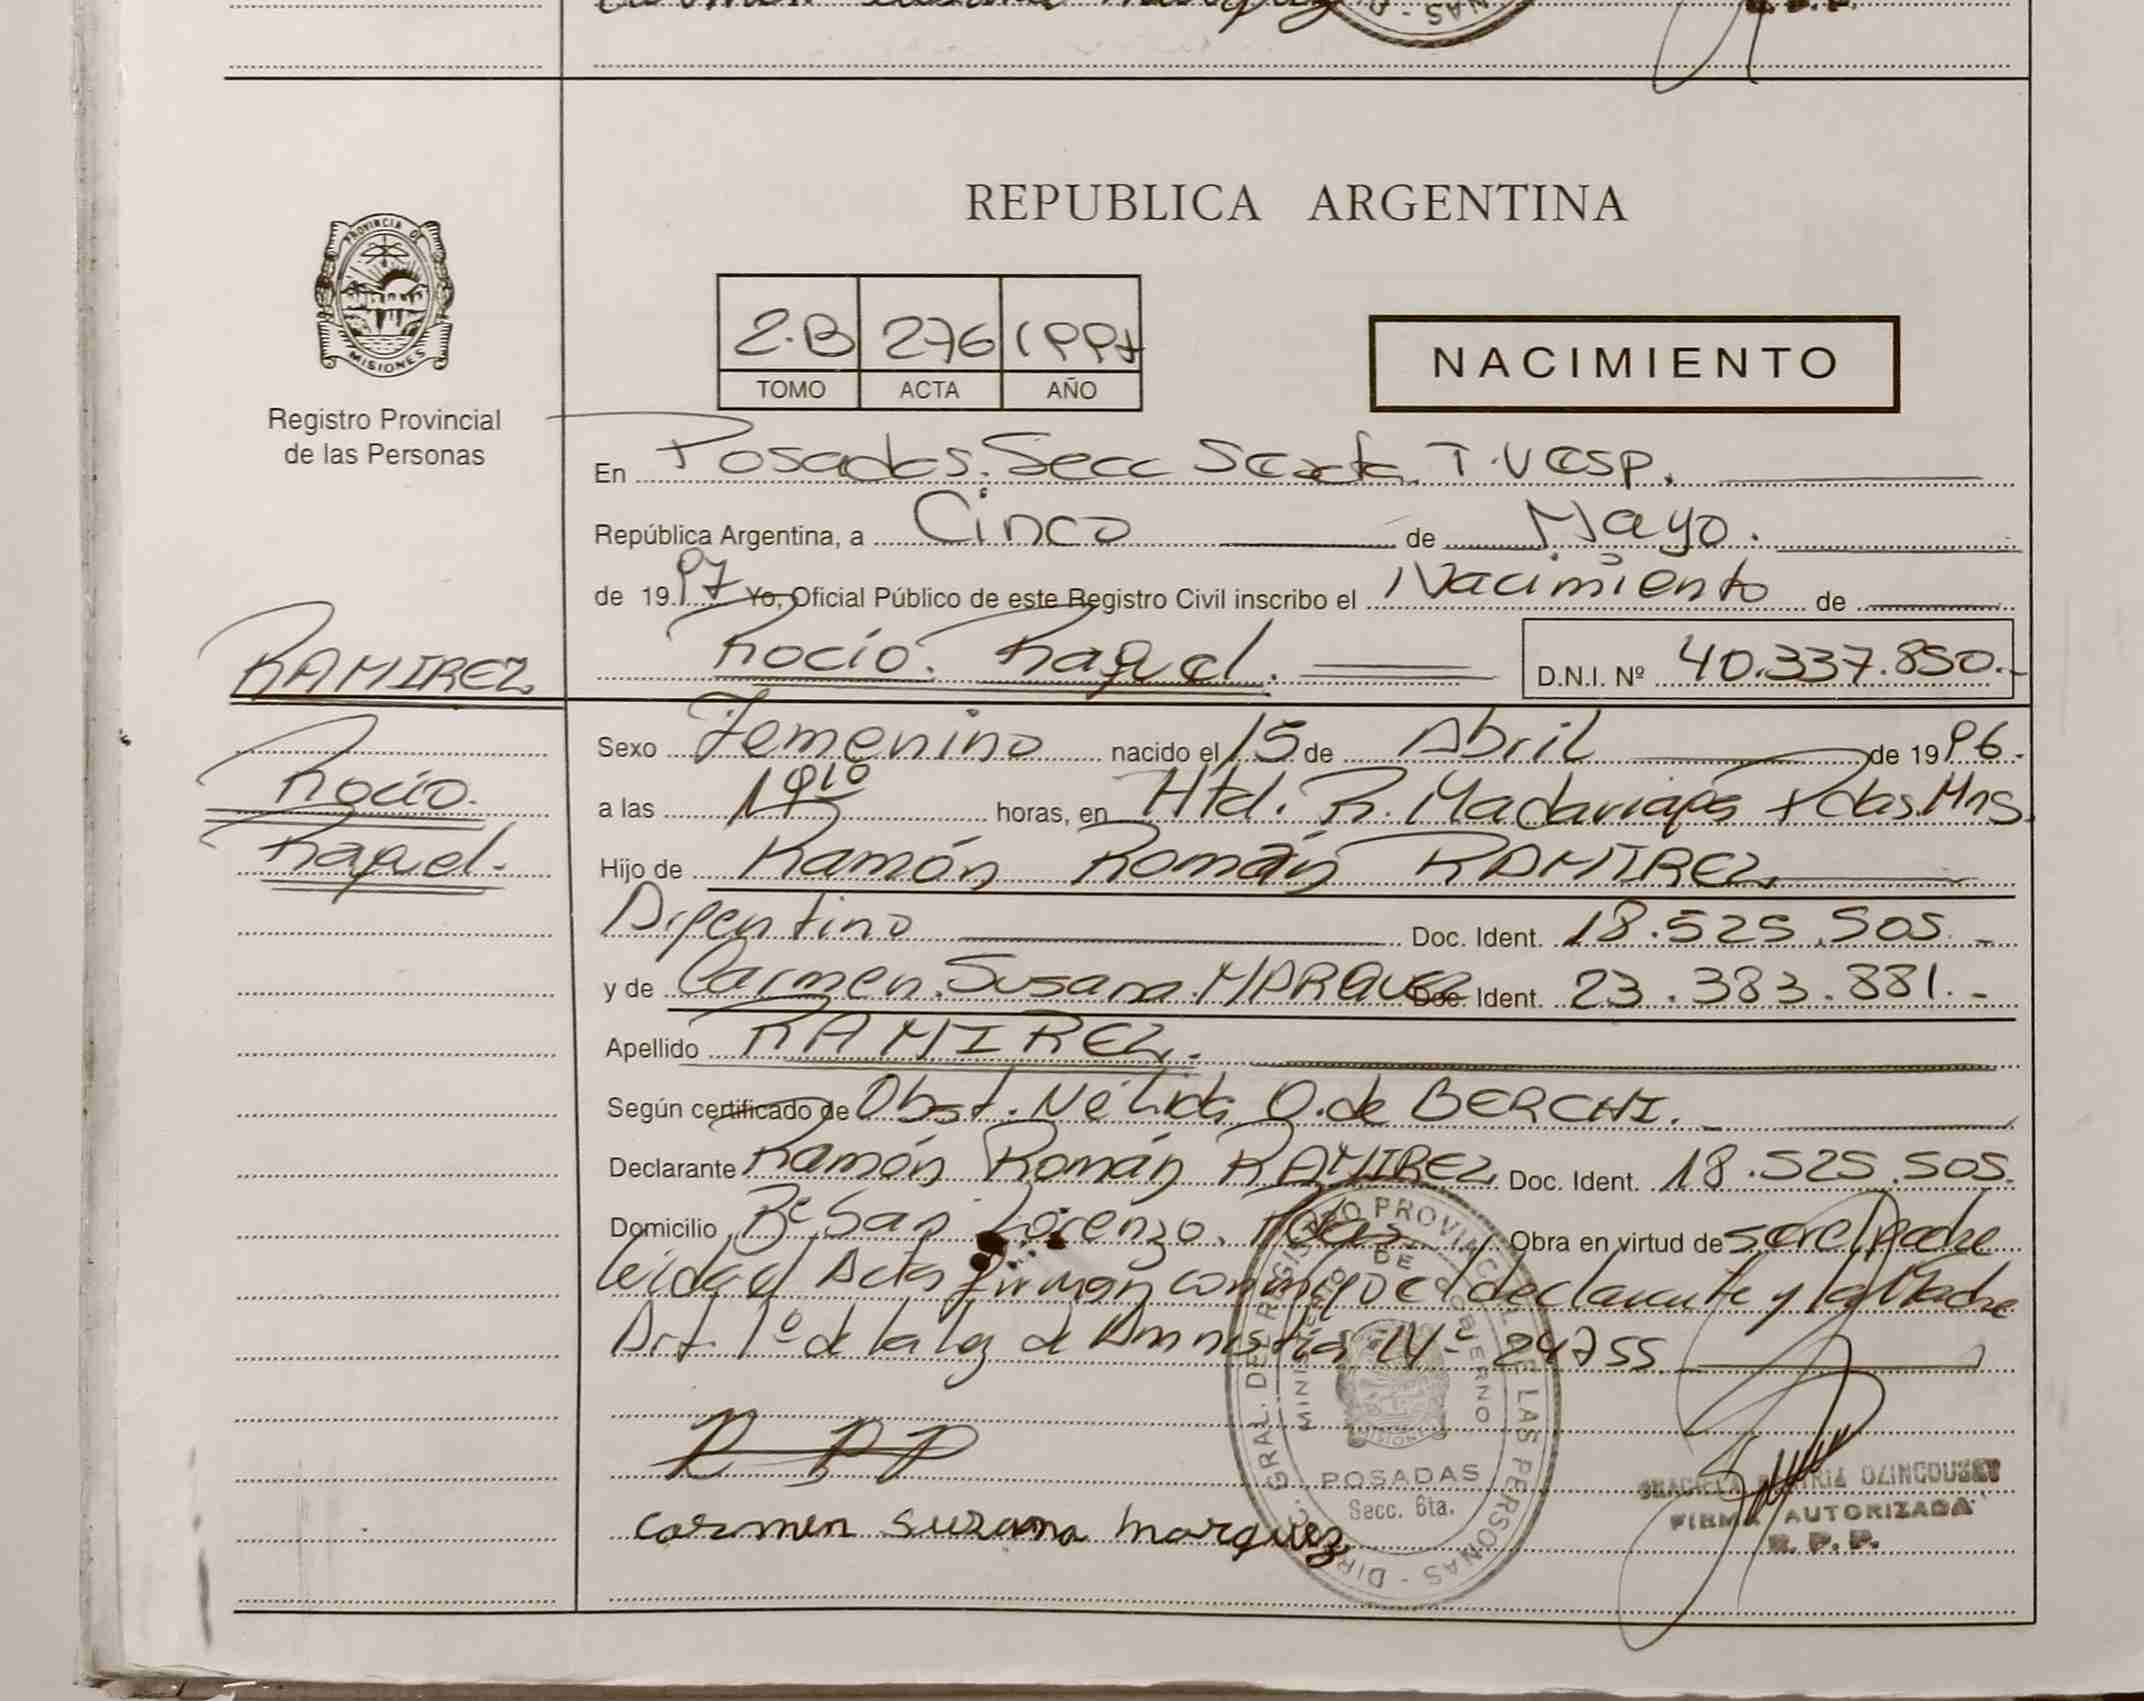 REPUBLICA ARGENTINA
PROVINCIA DE
MISIONES
Registro Provincial
de las Personas
2.B 276 1997
TOMO ACTA AÑO
NACIMIENTO
En Posadas. Secc Sexta. T. Vesp.
República Argentina, a Cinco de Mayo.
de 1997 Yo, Oficial Público de este Registro Civil inscribo el Nacimiento de
RAMIREZ
Rocío. Raquel.
D.N.I. Nº 40.337.850.-
Rocío.
Raquel.-
Sexo Femenino nacido el 15 de Abril de 1996.
a las 19 10 horas, en Htal. R. Madariaga Pdas. Mns.
Hijo de Ramón Román RAMIREZ
Argentino Doc. Ident. 18.525.505.-
y de Carmen. Susana. MARQUEZ Doc. Ident. 23.383.881.-
Apellido RAMIREZ.
Según certificado de Obst. Nélida O. de BERCHI.
Declarante Ramón Román RAMIREZ Doc. Ident. 18.525.505.
Domicilio Bº San Lorenzo. Pdas. Obra en virtud de ser el padre
leída el Acta firman conmigo el declarante y la Madre
Art. 1º de la ley de Amnistía Nº 24755
carmen suzana marquez
DIREC. GRAL. DEL REGISTRO PROVINCIAL DE LAS PERSONAS
MINISTERIO DE GOBIERNO
MISIONES
POSADAS
Secc. 6ta.
FIRMA AUTORIZADA
R. P. P.